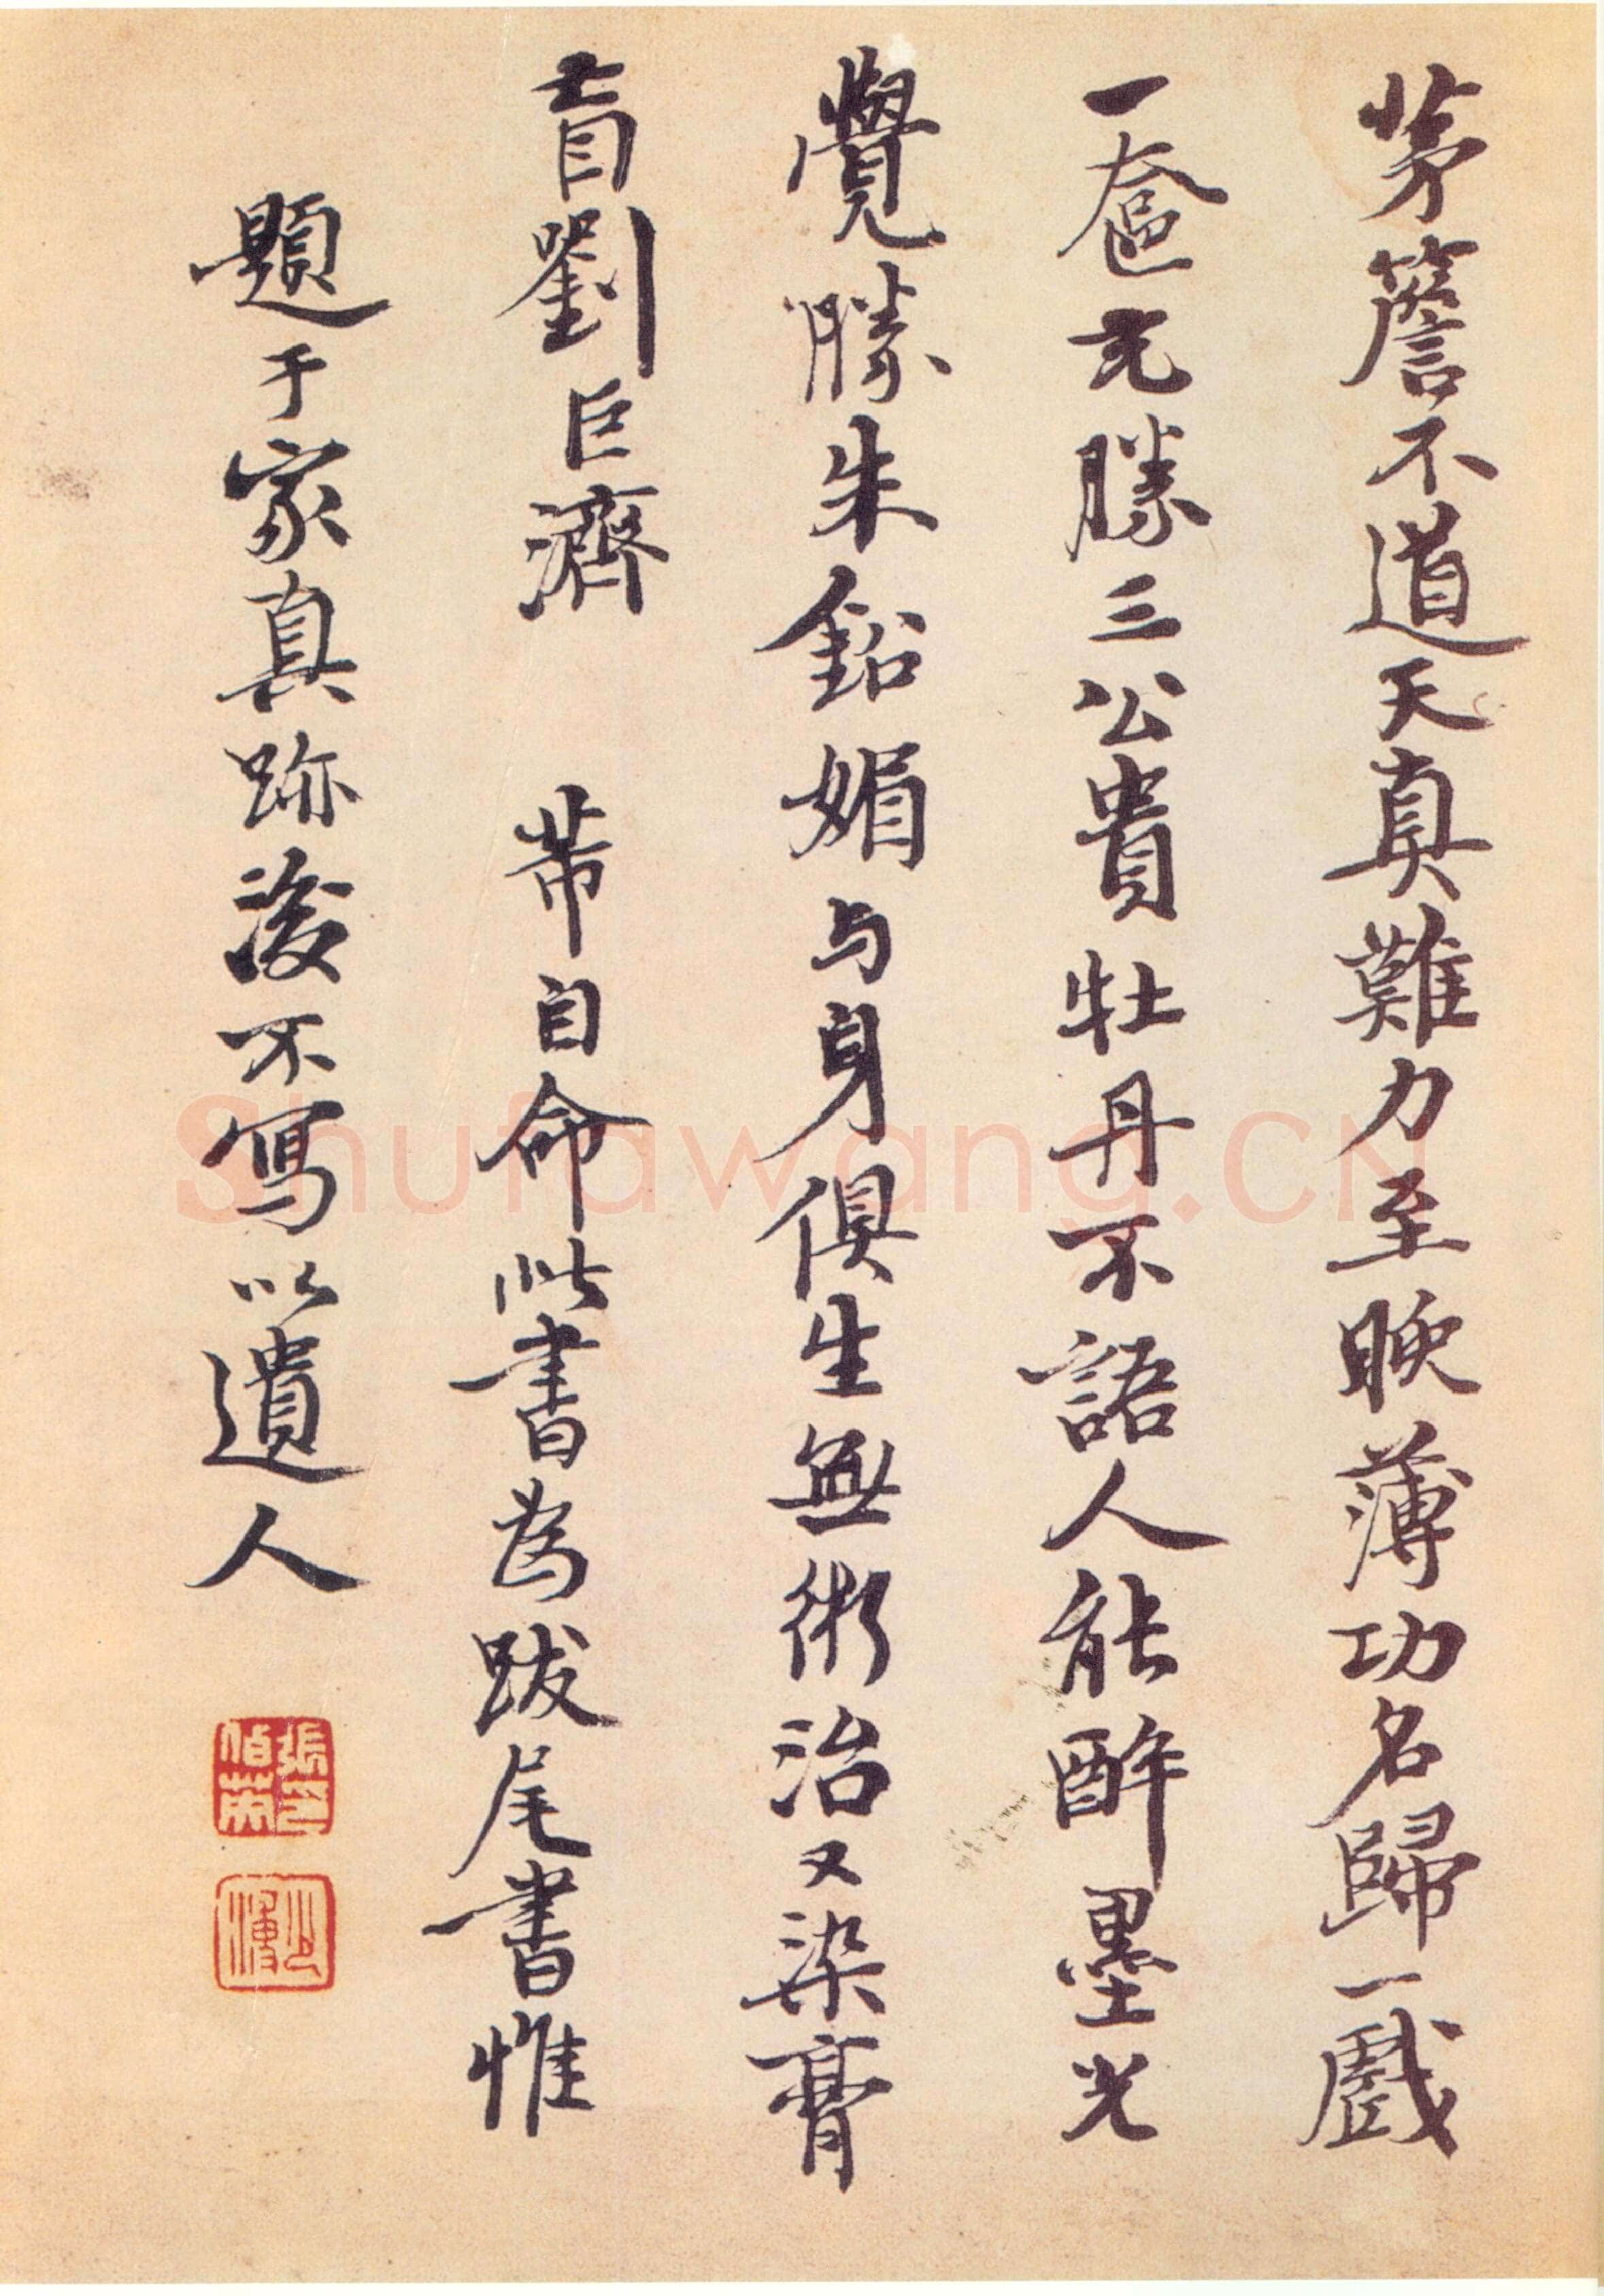 茅簷不道天真難力至晚薄功名歸一戲
一奩尤勝三公貴牡丹不語人能醉墨光
覺勝朱鉛媚与身俱生無術治又染膏
肓劉巨濟　芾自命此書為跋尾書惟
題于家真跡後不寫以遺人
Shufawang.CN